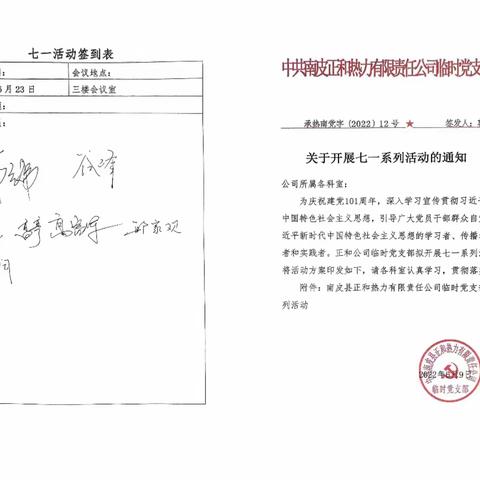 七一活动签到表
会议地点：
月23日
三楼会议室
中共南皮正和热力有限责任公司临时党支
承热南党字（2022）12号 ★ 签发人：
关于开展七一系列活动的通知
公司所属各科室：
为庆祝建党101周年，深入学习宣传贯彻习近
中国特色社会主义思想，引导广大党员干部群众自
近平新时代中国特色社会主义思想的学习者、传播
者和实践者。正和公司临时党支部拟开展七一系列
将活动方案印发如下，请各科室认真学习，贯彻落
附件：南皮县正和热力有限责任公司临时党支
列活动
中共南皮县正和热力有限责任公司
临时党支部
2022年6月9日